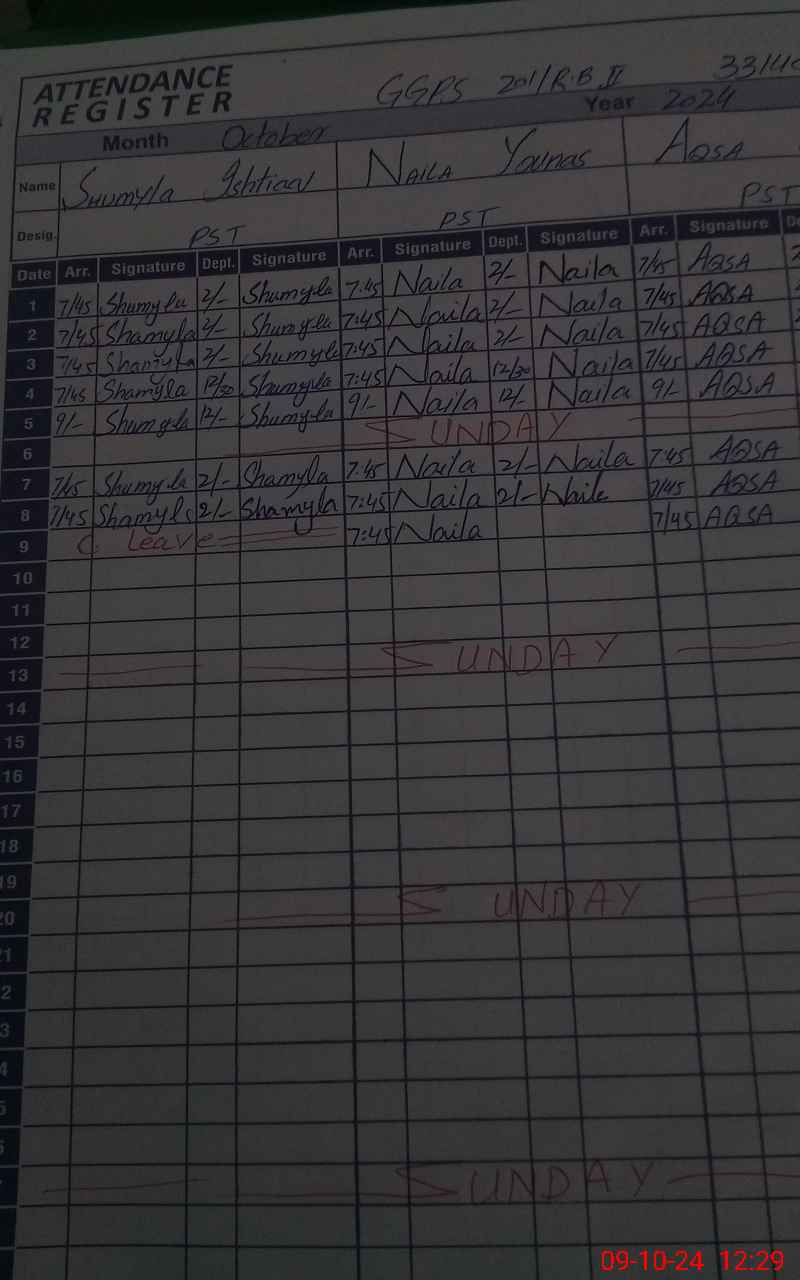 ATTENDANCE
REGISTER
GGPS 201/R.B II
Year 2024
Month October
Name Shumyla Ishtiaq NAILA Younas AQSA
Desig. PST PST PST
Date Arr. Signature Dept. Signature Arr. Signature Dept. Signature Arr. Signature
1 7/45 Shumyla 2/- Shumyla 7:45 Naila 2/- Naila 7/45 AQSA
2 7/45 Shamyla 2/- Shumyla 7:45 Naila 2/- Naila 7/45 AQSA
3 7/45 Shamyla 2/- Shumyla 7:45 Naila 2/- Naila 7/45 AQSA
4 7/45 Shamyla 12/30 Shumyla 7:45 Naila 12/30 Naila 7/45 AQSA
5 9/- Shumyla 12/- Shumyla 9/- Naila 12/- Naila 9/- AQSA
6 SUNDAY
7 7/45 Shumyla 2/- Shamyla 7:45 Naila 2/- Naila 7:45 AQSA
8 7/45 Shamyla 2/- Shamyla 7:45 Naila 2/- Naila 7/45 AQSA
9 C. Leave 7:45 Naila 7/45 AQSA
10
11
12
13 SUNDAY
14
15
16
17
18
19
20 SUNDAY
SUNDAY
09-10-24 12:29